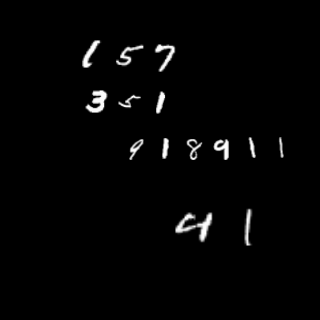 157
351
918911
41